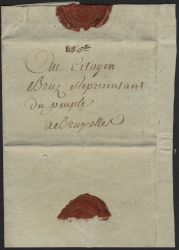 Au Citoyen
Briez Représentant
du peuple
a Bruxelles